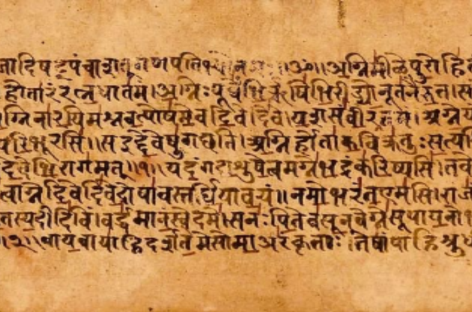 नमः ॥ॐ॥ अग्निमीळे पुरोहि
होतारं रत्नधातमं। अग्निः पूर्वेभिर्ऋषिभिरीड्यो नूतनैरुत। स
ग्निना रयिमश्नवत्पोषमेव दिवेदिवे। यशसं वीरवत्तमं। अग्ने य
परिभूरसि॥ स इद्देवेषु गच्छति। अग्निर्होता कविक्रतुः सत्य
देवेभिरागमत्॥१॥ यदंग दाशुषे त्वमग्ने भद्रं करिष्यसि। तवे
त्वाग्ने दिवेदिवे दोषावस्तर्धिया वयं॥ नमो भरंत एमसि। राज
तस्य दीदिविं। वर्द्धमानं स्वे दमे। स नः पितेव सूनवेग्ने सूपायनो
वायवायाहि दर्शतेमे सोमा अरंकृताः। तेषां पाहि श्रु